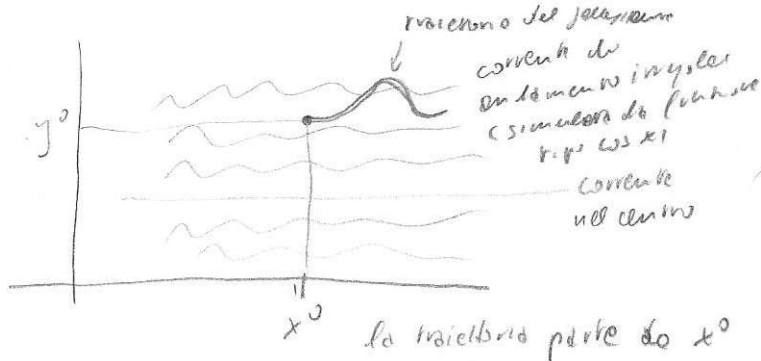 traiettoria del
corrente di
andamento irregolare
(simulata da funzione
tipo cos x)
y⁰
corrente
nel centro
x⁰
la traiettoria parte da x⁰